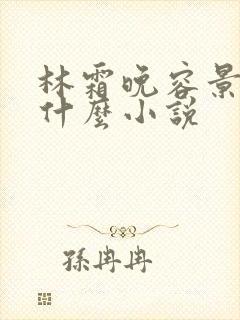 林霜晚容景
什麼小說
孫冉冉